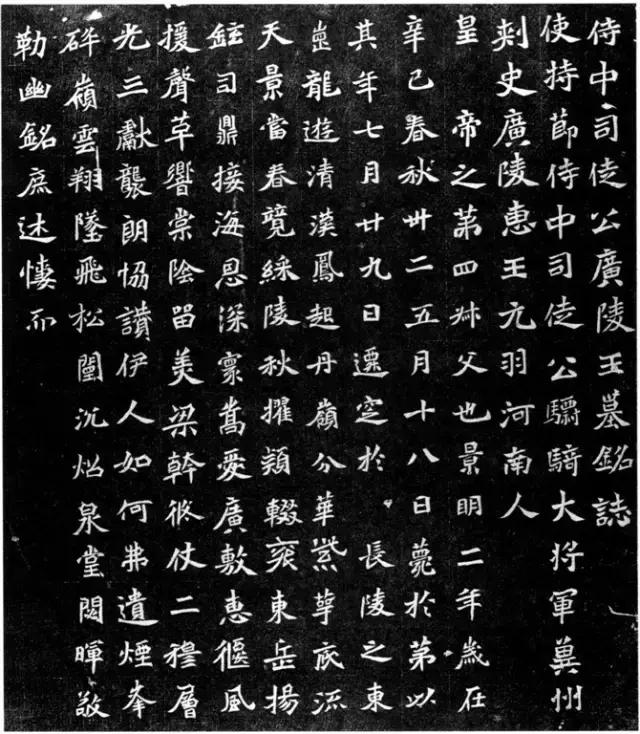 侍中司徒公廣陵王墓銘誌
使持節侍中司徒公驃騎大將軍冀州
刺史廣陵惠王元羽河南人
皇帝之第四叔父也景明二年歲在
辛巳春秋卅二五月十八日薨於第以
其年七月廿九日遷窆於長陵之東
崗龍遊清漢鳳起丹嶺分華紫萼底流
天景當春競綵陵秋擢穎輟袞東岳揚
鉉司鼎接海恩深寰嵩愛廣敷惠偃風
援聲革響棠陰留美梁幹攸仗二穆層
光三獻襲朗協讚伊人如何弗遺煙峯
碎嶺雲翔墜飛松闈沉炤泉堂閟暉敬
勒幽銘庶述悽而